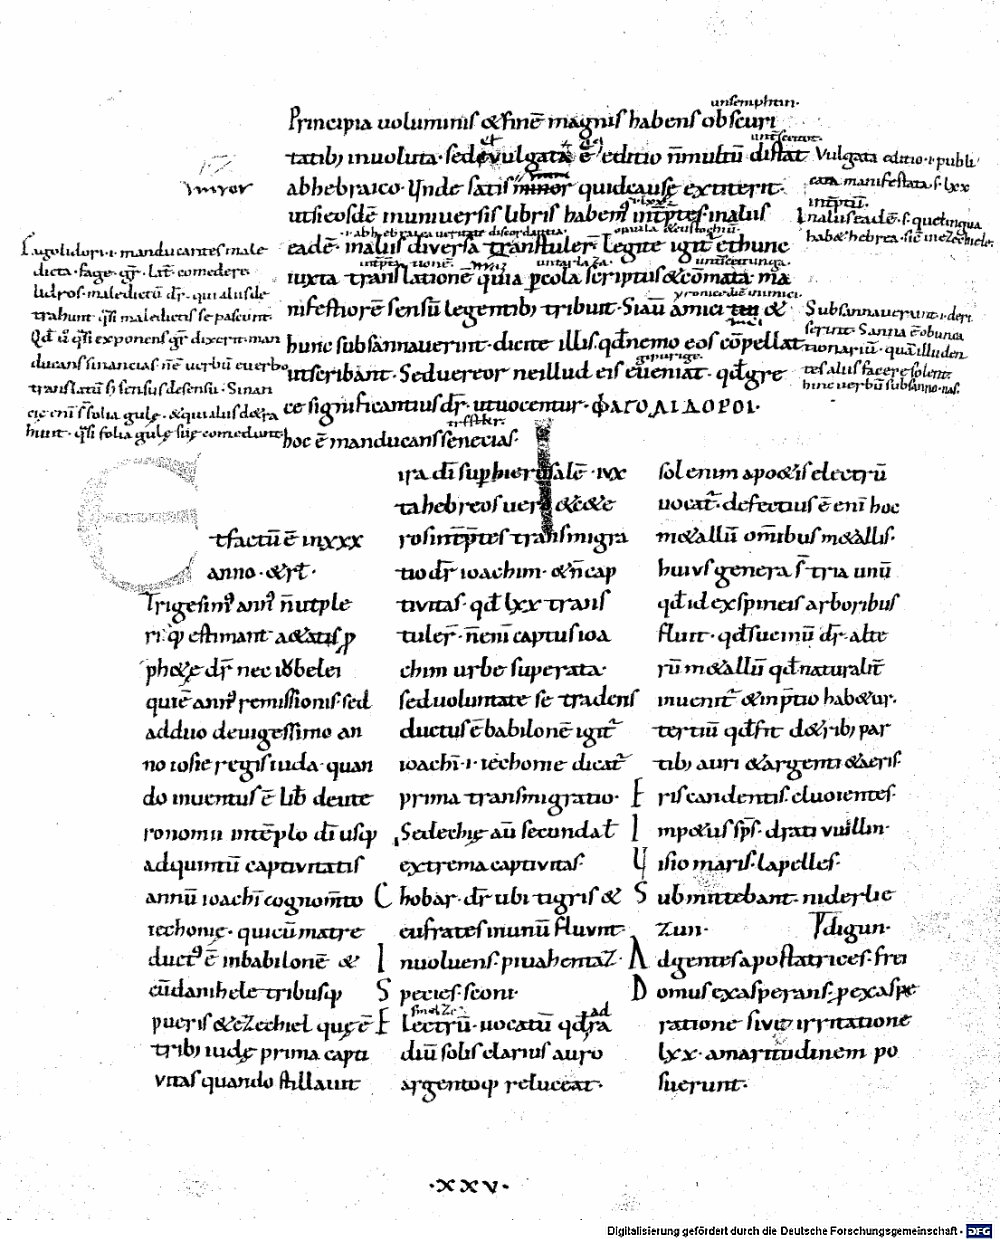 unsemphtin·
Principia uoluminis & finē magnis habens obscuri
tatib; inuoluta· sed & vulgata ē editio n̄ multū distat
ab hebraico· Unde satis minor quid causę extiterit·
miror
ut si eosdē in uniuersis libris habem᷒ int̄p̄tes· in aliis
eadē· in aliis diuersa transtulerī· Legite igit̄ & hunc
iuxta translationē quia p̄ cola scriptus & cōmata· ma
nifestiorē sensū legentib; tribuit· Si aū amici &
hunc subsannauerint· dicite illis· qđ nemo eos cōpellat
ut scribant· Sed uereor ne illud eis eueniat· qđ gre
ce significantius dr̄· ut uocentur· ΦΑΓΟΛΙΔΟΡΟΙ·
hoc ē manducans senecias·
Vulgata editio ·i· publi
cata manifestata ·s· lxx
int̄p̄tū·
In aliis eadē ·s· que lingua
hab& hebrea· sic̄ in ezechiele·
Subsannauerunt ·i· deri
serunt· Sanna ē obunca
tionariū· quā illuden
tes aliis facere solent
hinc uerbū subsanno· nas·
Fagolidori ·i· manducantes male
dicta· fage· gr̄· Lat̄· comedere
lidros· maledictū dr̄· qui aliis de
trahunt· q̄si maledictis se pascunt·
Qđ ū q̄si exponens gr̄ dixerit· man
ducans sinancias· n̄ē uerbū e uerbo
translatū s; sensus de sensu· Sinan
cię eni s̄ folia gulę· & qui aliis detra
hunt· q̄si folia gulę suę comedunt
Et factū ē in xxx
anno· & rt·
Trigesim᷒ ann᷒ n̄ ut ple
riq; estimant aetatis p̄
phetę dr̄ nec iobelei
qui ē ann᷒ remissionis· sed
ad duodeuigessimo an
no iosie regis iuda· quan
do inuentus ē lib̄ deute
ronomii in tēplo dī usq;
ad quintū captiuitatis
annū ioachī cognom̄to
iechonię· qui cū matre
duct᷒ ē in babilonē &
cū danihele tribusq;
pueris & ezechiel quę ē
trib; iudę prima capti
uitas quando stillauit
ira dī sup hierusalē· iux
ta hebreos uero & cete
ros int̄p̄tes transmigra
tio dr̄ ioachim· & n̄ cap
tiuitas· qđ lxx trans
tuler̄· n̄ eni captus ioa
chim urbe superata·
sed uoluntate se tradens
ductus ē babilonē igit̄
ioachī ·i· iechonie dicat̄
prima transmigratio·
Sedechię aū secunda t̄
extrema captiuitas·
Chobar· dr̄ ubi tigris &
eufrates in unū fluunt·
Inuoluens· piuahentaz·
Species· sconi·
smelze·
Electrū· uocatū qđ ad ra
diū solis clarius auro
argentoq; reluceat·
sol enim apo & is electrū
uocat̄· defectius ē eni hoc
m&allū om̄ibus m&allis·
huius genera s̄ tria unū
qđ id ex spineis arboribus
fluit· qđ sucinū dr̄· alte
rū m&allū qđ naturalit̄
inuenit̄ & in p̄tio hab&ur·
tertiū qđ fit de trib; par
tib; auri & argenti & aeris·
Eris candentis· eluoientes·
Imp&us sp̄s· drati vuillin·
Visio maris· lapelles·
Submittebant· niderlie
zun· Vdigun·
Ad gentes apostatrices· frei
Domus exasperans· p̄ exaspe
ratione siue irritatione
lxx· amaritudinem po
suerunt·
·XXV·
Digitalisierung gefördert durch die Deutsche Forschungsgemeinschaft - DFG